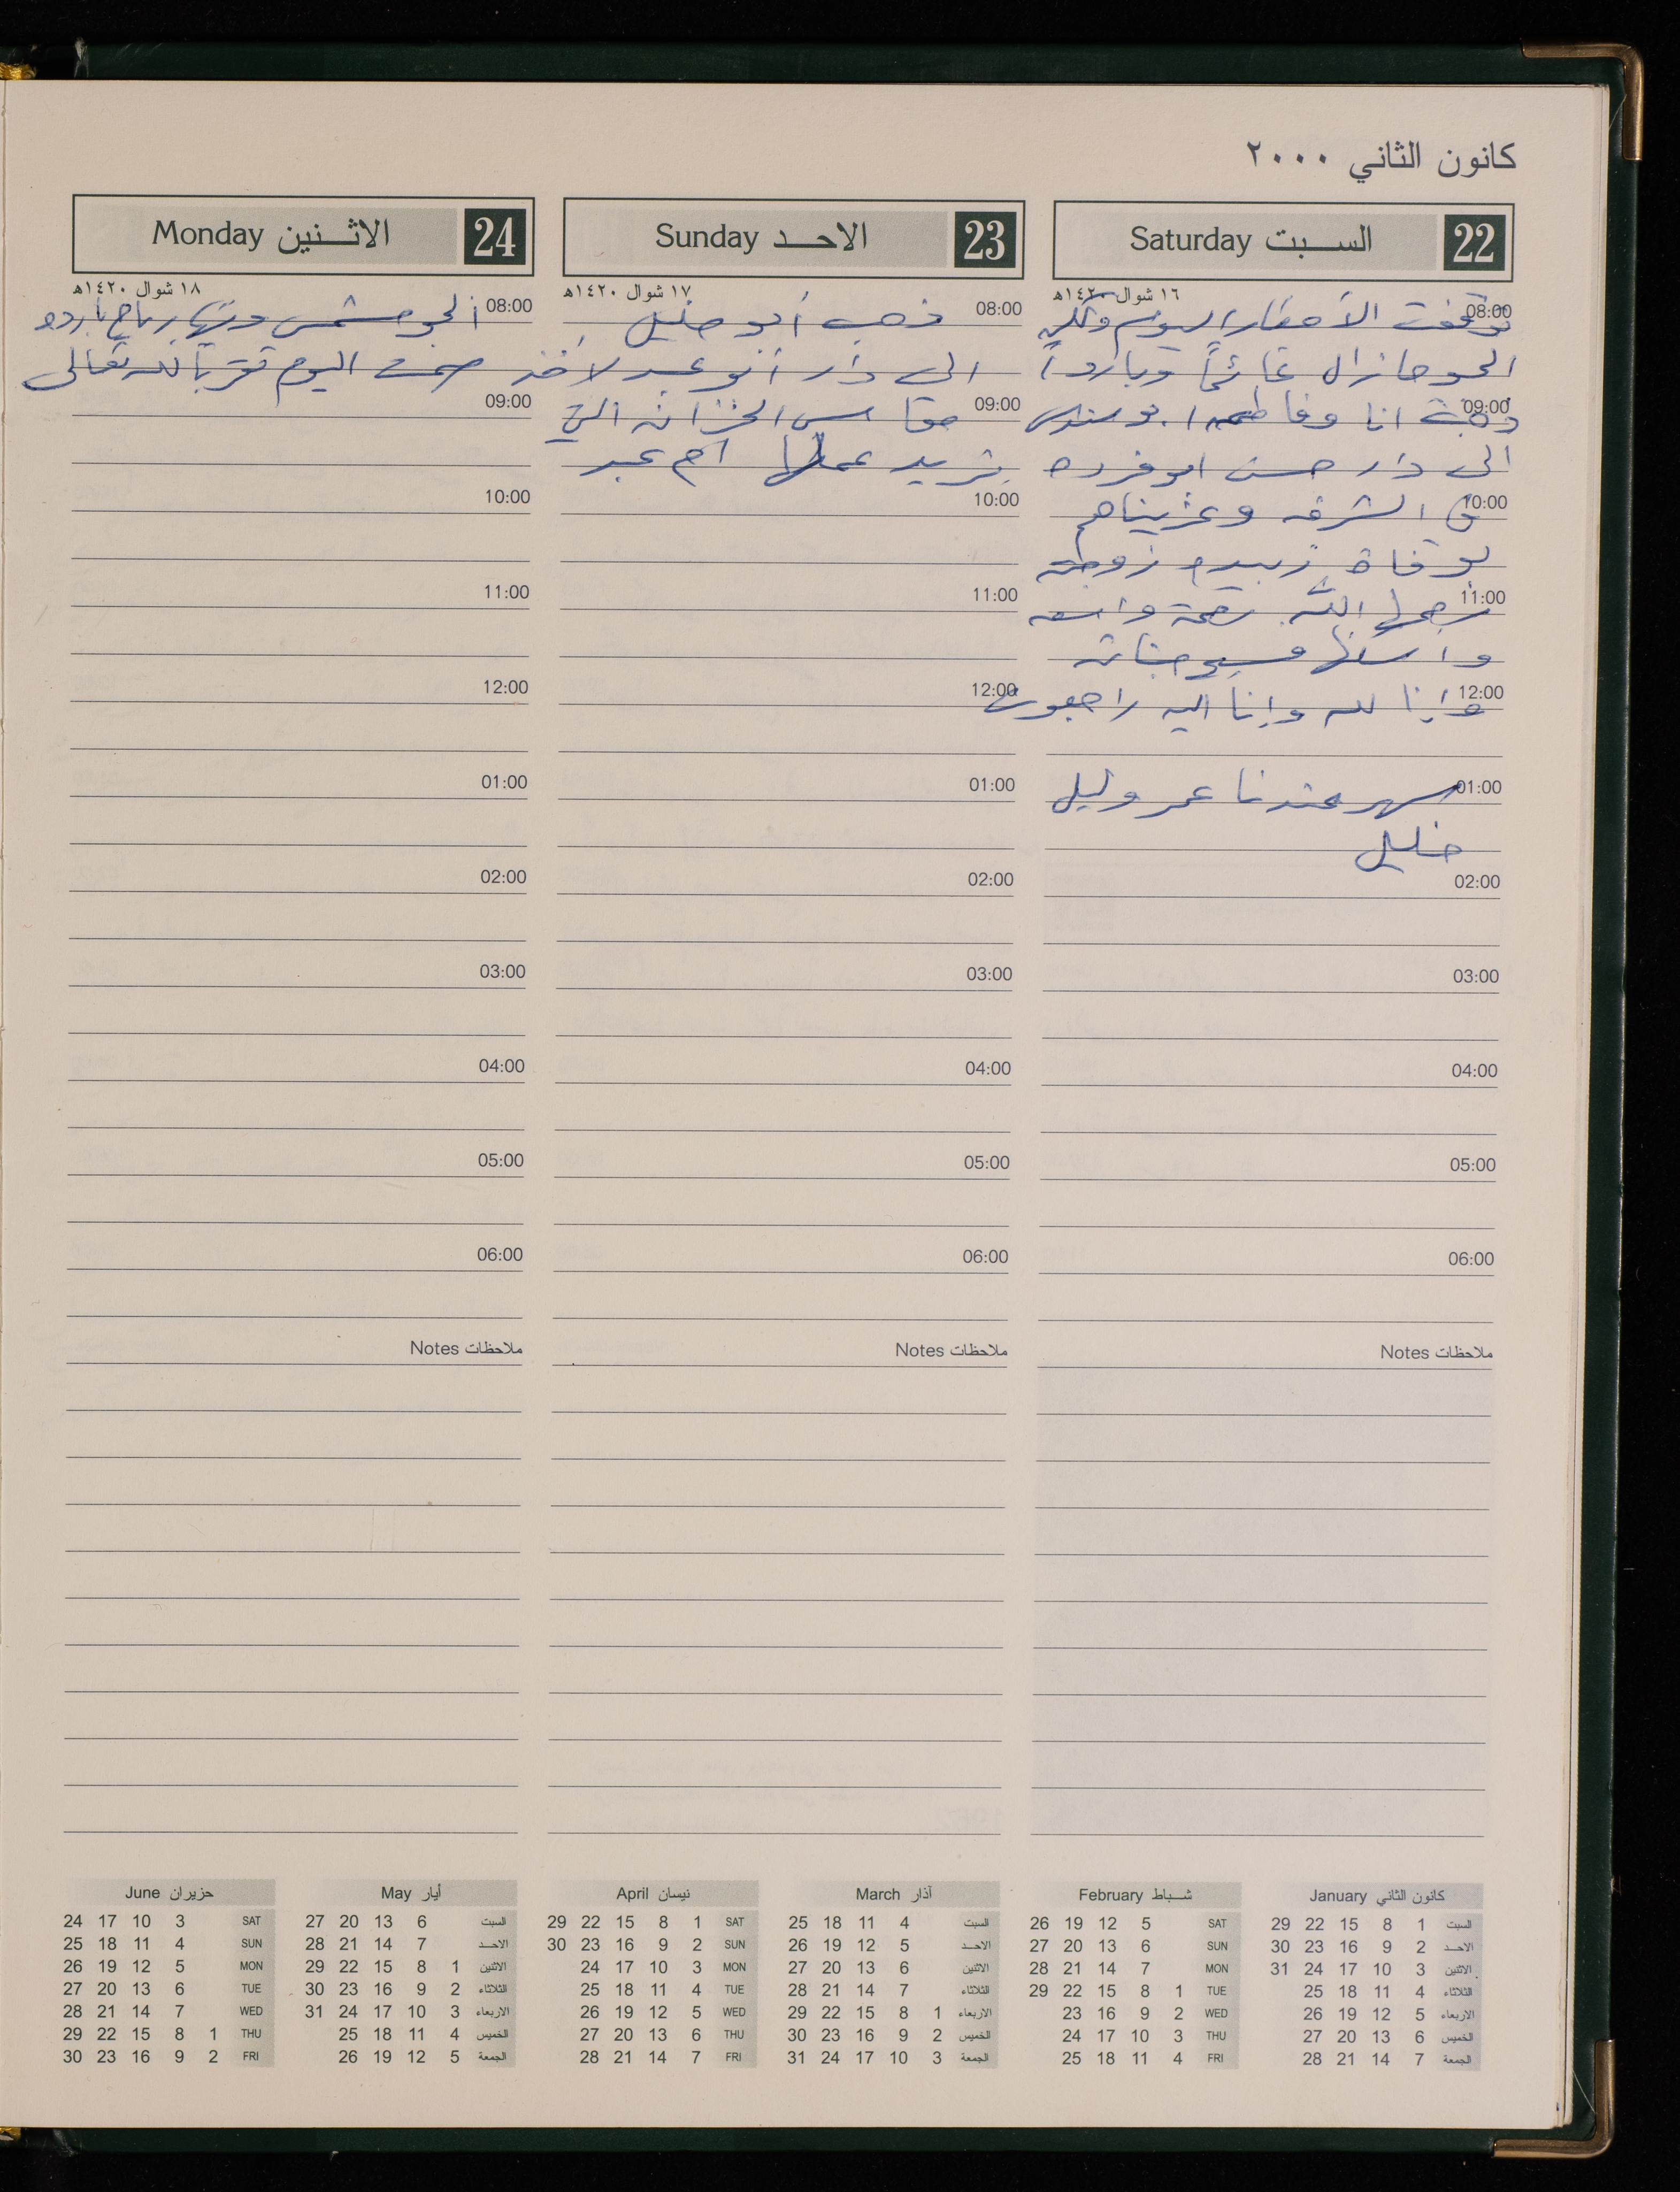 كانون الثاني ٢٠٠٠
22 السبت Saturday
١٦ شوال ١٤٢٠هـ
08:00
توقفت الأمطار اليوم ولكن
الجو ما زال غائماً وبارداً
09:00
ذهبت انا وفاطمه
الى دار حسن ابو فرده
10:00
في الشرفه وعزيناهم
بوفاة زبيده زوجته
11:00
رحمها الله رحمة واسعه
واسكنها فسيح جناته
12:00
وإنا لله وإنا اليه راجعون
01:00
سهر عندنا عمر وليل
خليل
02:00
03:00
04:00
05:00
06:00
ملاحظات Notes
23 الاحد Sunday
١٧ شوال ١٤٢٠هـ
08:00
ذهب أبو خليل
الى دار أبو عبد لاخذ
09:00
مقاس الخزانه التي
تريد عملها ام عبد
10:00
11:00
12:00
01:00
02:00
03:00
04:00
05:00
06:00
ملاحظات Notes
24 الاثنين Monday
١٨ شوال ١٤٢٠هـ
08:00
الجو مشمس وفيه رياح بارده
صمت اليوم تقرباً لله تعالى
09:00
10:00
11:00
12:00
01:00
02:00
03:00
04:00
05:00
06:00
ملاحظات Notes
كانون الثاني January
السبت 1 8 15 22 29
الاحد 2 9 16 23 30
الاثنين 3 10 17 24 31
الثلاثاء 4 11 18 25
الاربعاء 5 12 19 26
الخميس 6 13 20 27
الجمعة 7 14 21 28
شباط February
SAT 5 12 19 26
SUN 6 13 20 27
MON 7 14 21 28
TUE 1 8 15 22 29
WED 2 9 16 23
THU 3 10 17 24
FRI 4 11 18 25
آذار March
السبت 4 11 18 25
الاحد 5 12 19 26
الاثنين 6 13 20 27
الثلاثاء 7 14 21 28
الاربعاء 1 8 15 22 29
الخميس 2 9 16 23 30
الجمعة 3 10 17 24 31
نيسان April
SAT 1 8 15 22 29
SUN 2 9 16 23 30
MON 3 10 17 24
TUE 4 11 18 25
WED 5 12 19 26
THU 6 13 20 27
FRI 7 14 21 28
أيار May
السبت 6 13 20 27
الاحد 7 14 21 28
الاثنين 1 8 15 22 29
الثلاثاء 2 9 16 23 30
الاربعاء 3 10 17 24 31
الخميس 4 11 18 25
الجمعة 5 12 19 26
حزيران June
SAT 3 10 17 24
SUN 4 11 18 25
MON 5 12 19 26
TUE 6 13 20 27
WED 7 14 21 28
THU 1 8 15 22 29
FRI 2 9 16 23 30